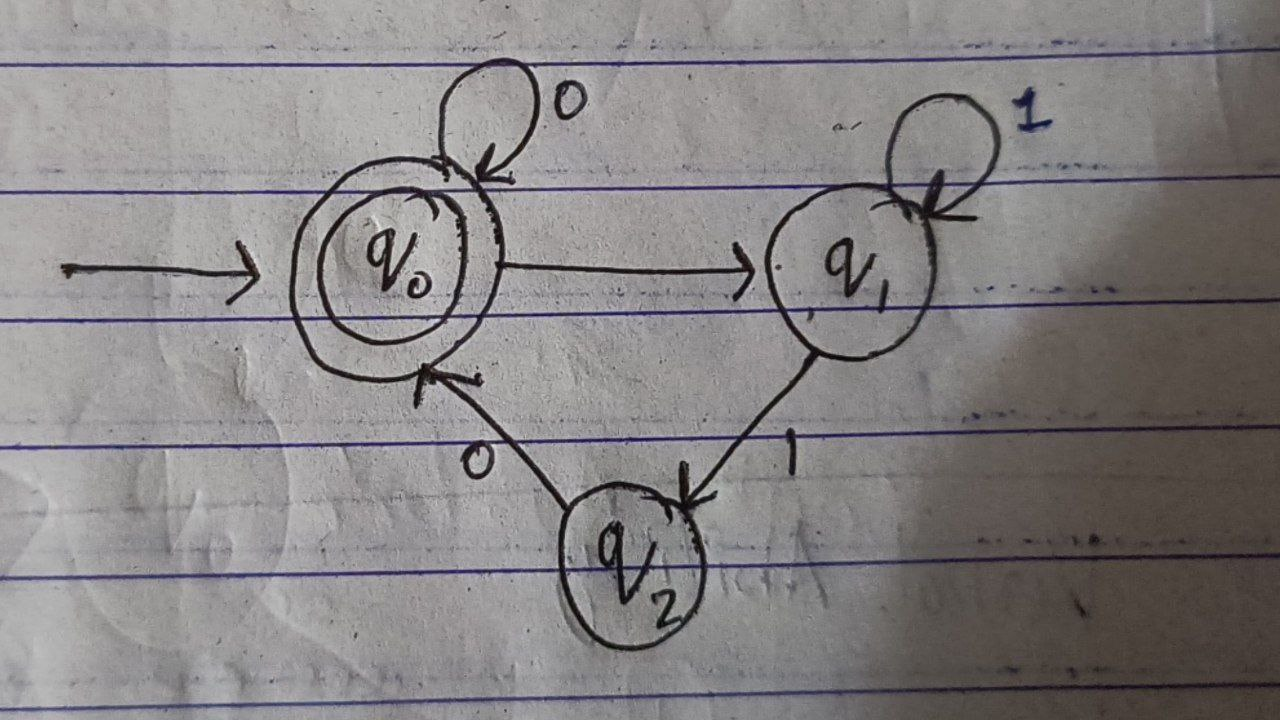 0
1
q0
q1
0
1
q2